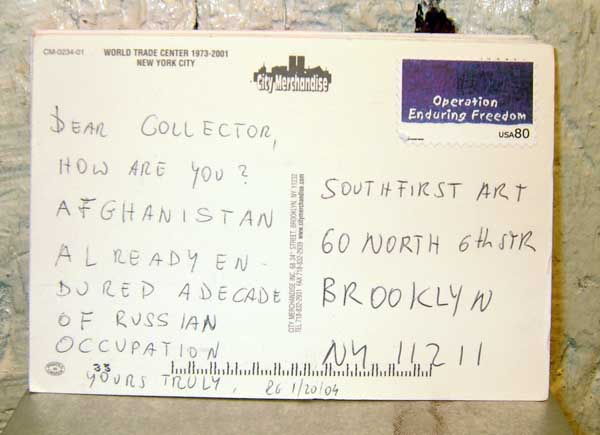 CM-0234-01
WORLD TRADE CENTER 1973-2001
NEW YORK CITY
City Merchandise
Operation
Enduring Freedom
USA80
DEAR COLLECTOR,
HOW ARE YOU?
AFGHANISTAN
ALREADY EN-
DURED A DECADE
OF RUSSIAN
OCCUPATION
33
YOURS TRULY,
RG 1/20/04
CITY MERCHANDISE INC. 68 34th STREET, BROOKLYN, NY 11232
TEL 718-832-2931 FAX 718-832-2939 www.citymerchandise.com
SOUTHFIRST ART
60 NORTH 6th STR
BROOKLYN
NY 11211